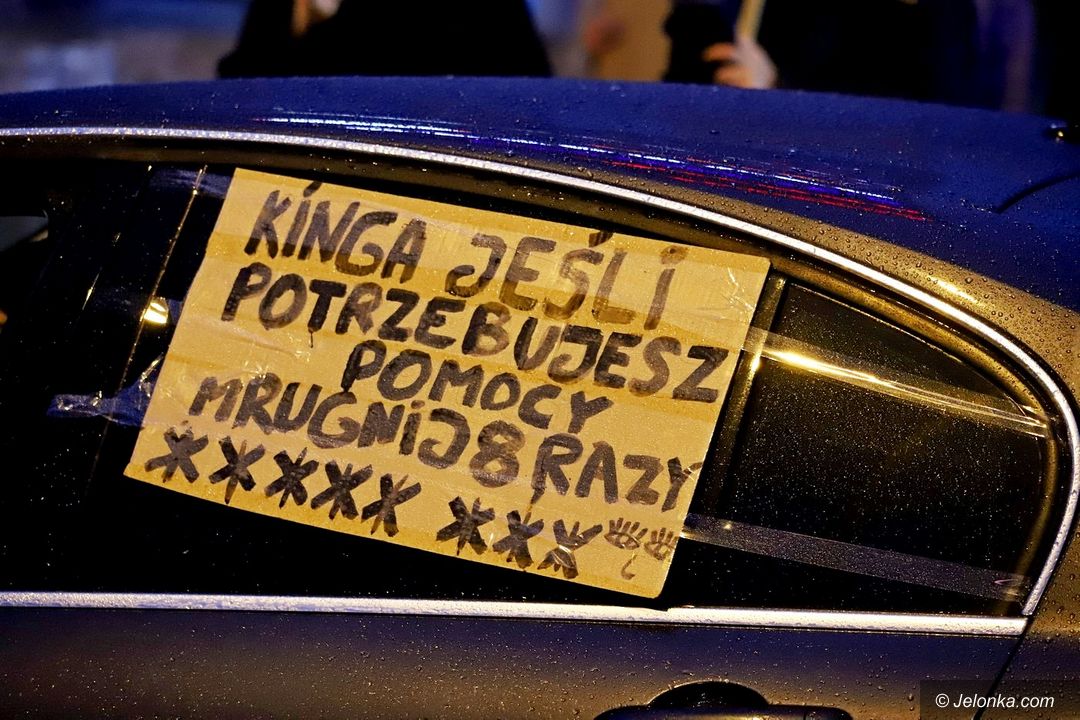 KINGA JEŚLI
POTRZEBUJESZ
POMOCY
MRUGNIJ 8 RAZY
***** ***
© Jelonka.com